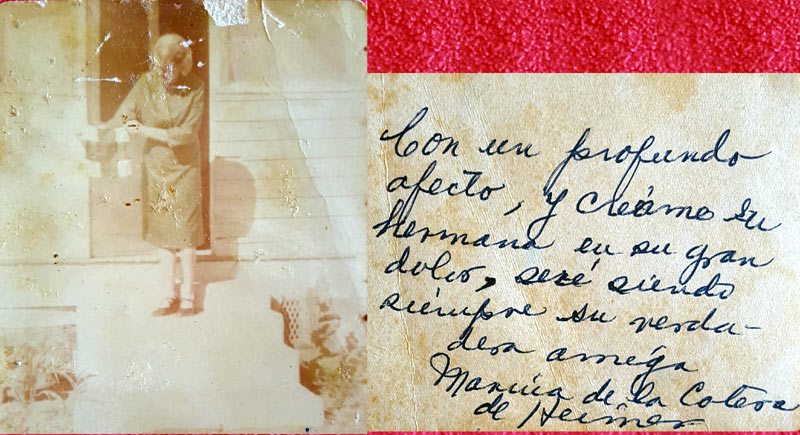 Con un profundo
afecto, y creáme su
hermana en su gran
dolor, seré siendo
siémpre su verda-
dera amiga
Maruca de la Cotera
de Heimer